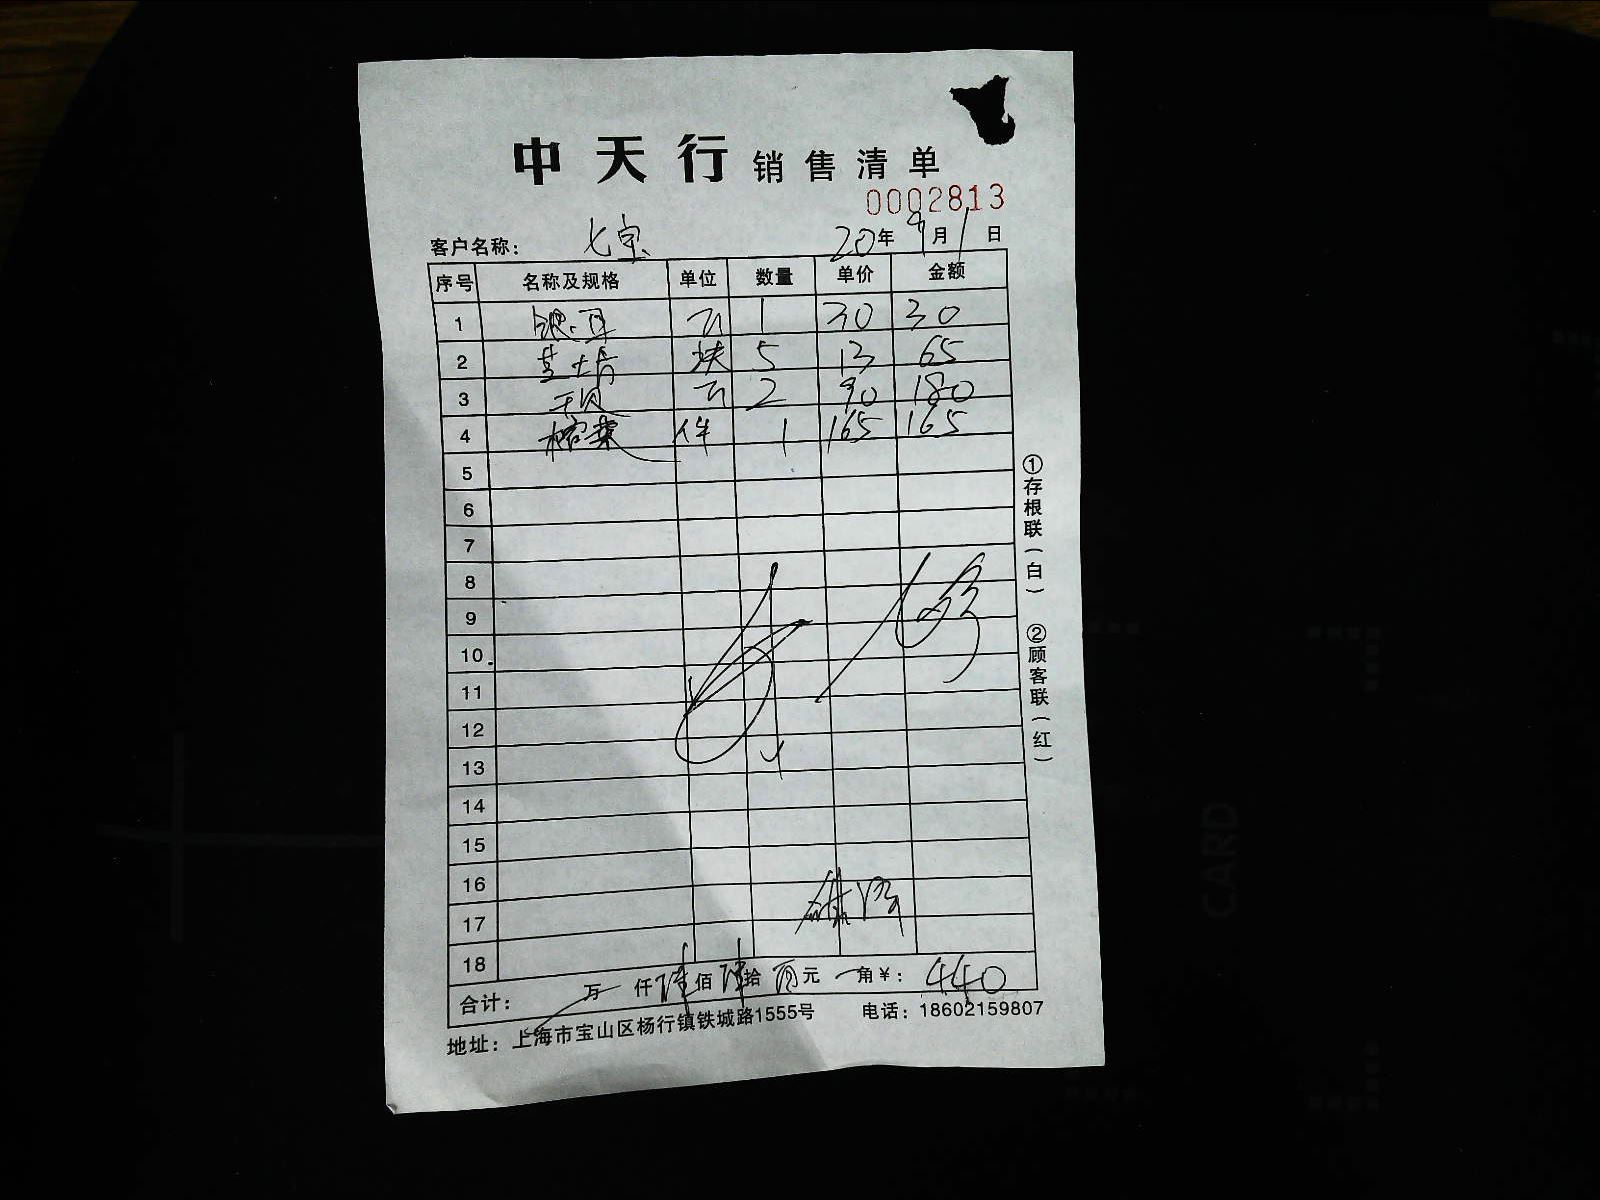 中天行 销售清单
0002813
客户名称： 七宝 20年 9月 1日
序号 名称及规格 单位 数量 单价 金额
1 1 30 30
2 块 5 13 65
3 干贝 2 90 180
4 榨菜 件 1 165 165
5
6
7
8
9
10
11
12
13
14
15
16
17
18
合计： 万 仟 佰 拾 元 角 ¥： 440
地址：上海市宝山区杨行镇铁城路1555号 电话：18602159807
①存根联（白） ②顾客联（红）
CARD